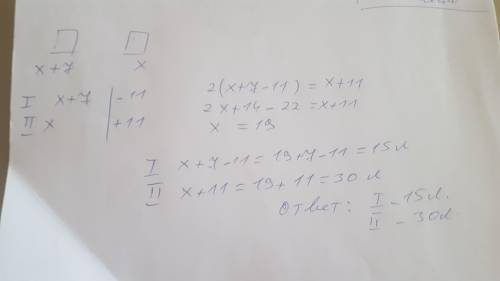 x+7 x
I x+7 | -11
II x | +11
2(x+7-11) = x+11
2x+14-22 = x+11
x = 19
I x+7-11 = 19+7-11 = 15 л
II x+11 = 19+11 = 30 л
Ответ: I - 15 л.
II - 30 л